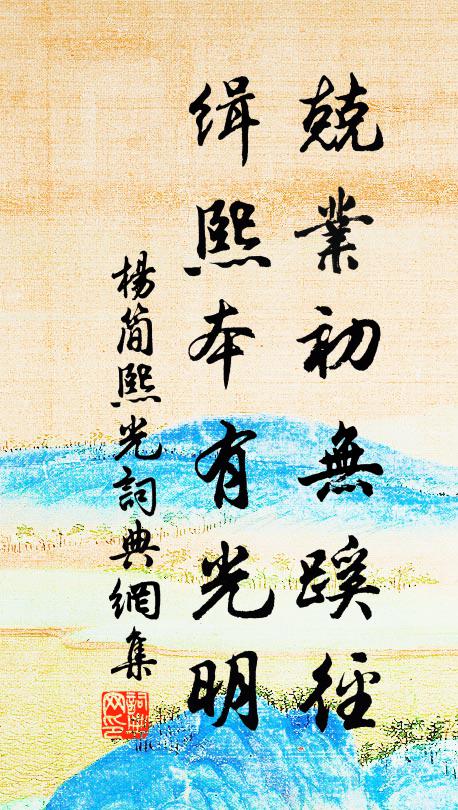 兢業初無蹊徑
緝熙本有光明
楊簡熙光詞典網集